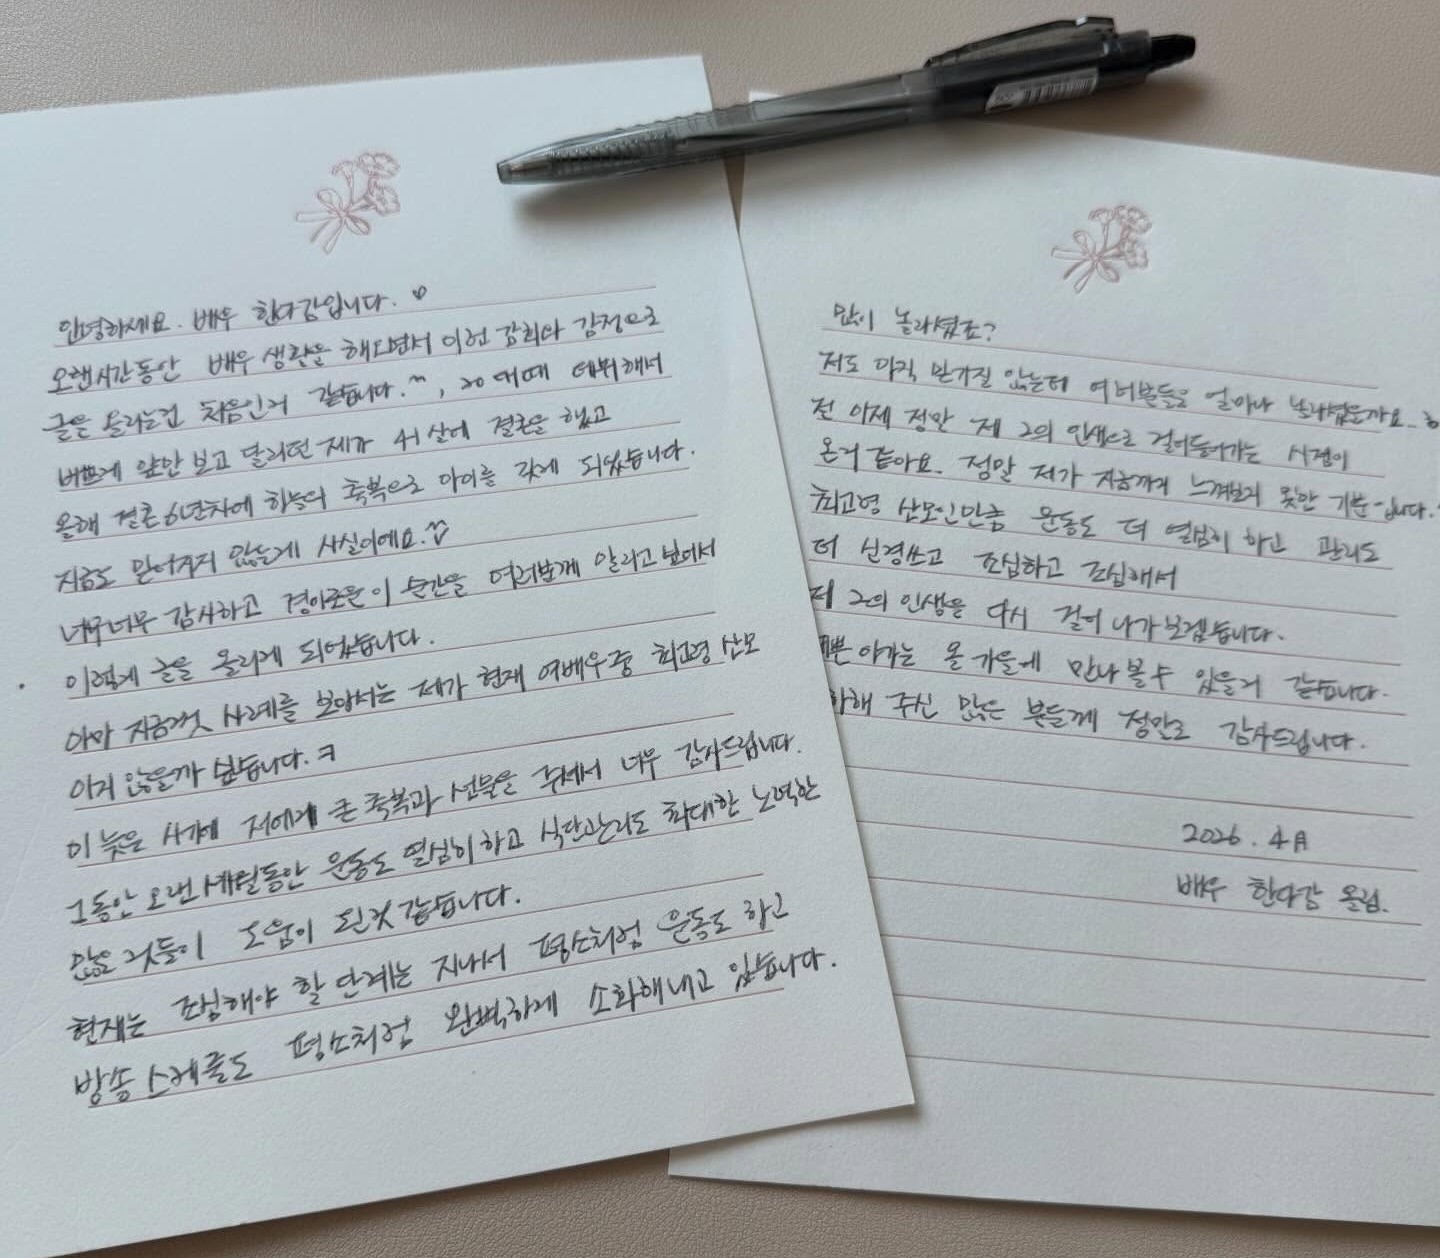 안녕하세요. 배우 한다감입니다. ♡
오랜시간동안 배우 생활을 해오면서 이런 감정으로
글을 올리는건 처음인거 같습니다.^^, 20대때 데뷔해서
바쁘게 앞만 보고 달리던 제가 41살에 결혼을 했고
올해 결혼 6년차에 하늘의 축복으로 아이를 갖게 되었습니다.
지금도 믿어지지 않는데 사실이에요.
너무너무 감사하고 경이로운 이 순간을 여러분께 알리고 싶어서
이렇게 글을 올리게 되었습니다.
아마 지금껏 사례를 보아서는 제가 현재 여배우중 최고령 산모
이지 않을까 싶습니다. ㅋ
이 늦은 시기에 저에게 큰 축복과 선물을 주셔서 너무 감사드립니다.
그동안 오랜 세월동안 운동도 열심히 하고 식단관리도 최대한 노력한
많은 것들이 도움이 된것 같습니다.
현재는 조심해야 할 단계는 지나서 평소처럼 운동도 하고
방송 스케줄도 평소처럼 완벽하게 소화해내고 있습니다.
많이 놀라셨죠?
저도 아직 믿기질 않는데 여러분들은 얼마나 놀라셨을까요..
전 이제 정말 제 2의 인생으로 걸어들어가는 시점이
온거 같아요. 정말 제가 지금까지 느껴보지 못한 기분입니다.
최고령 산모인만큼 운동도 더 열심히 하고 관리도
더 신경쓰고 조심하고 조심해서
제 2의 인생을 다시 걸어 나가보겠습니다.
쁜 아가는 올 가을에 만나 볼 수 있을거 같습니다.
하해 주신 많은 분들께 정말로 감사드립니다.
2026. 4月
배우 한다감 올림.